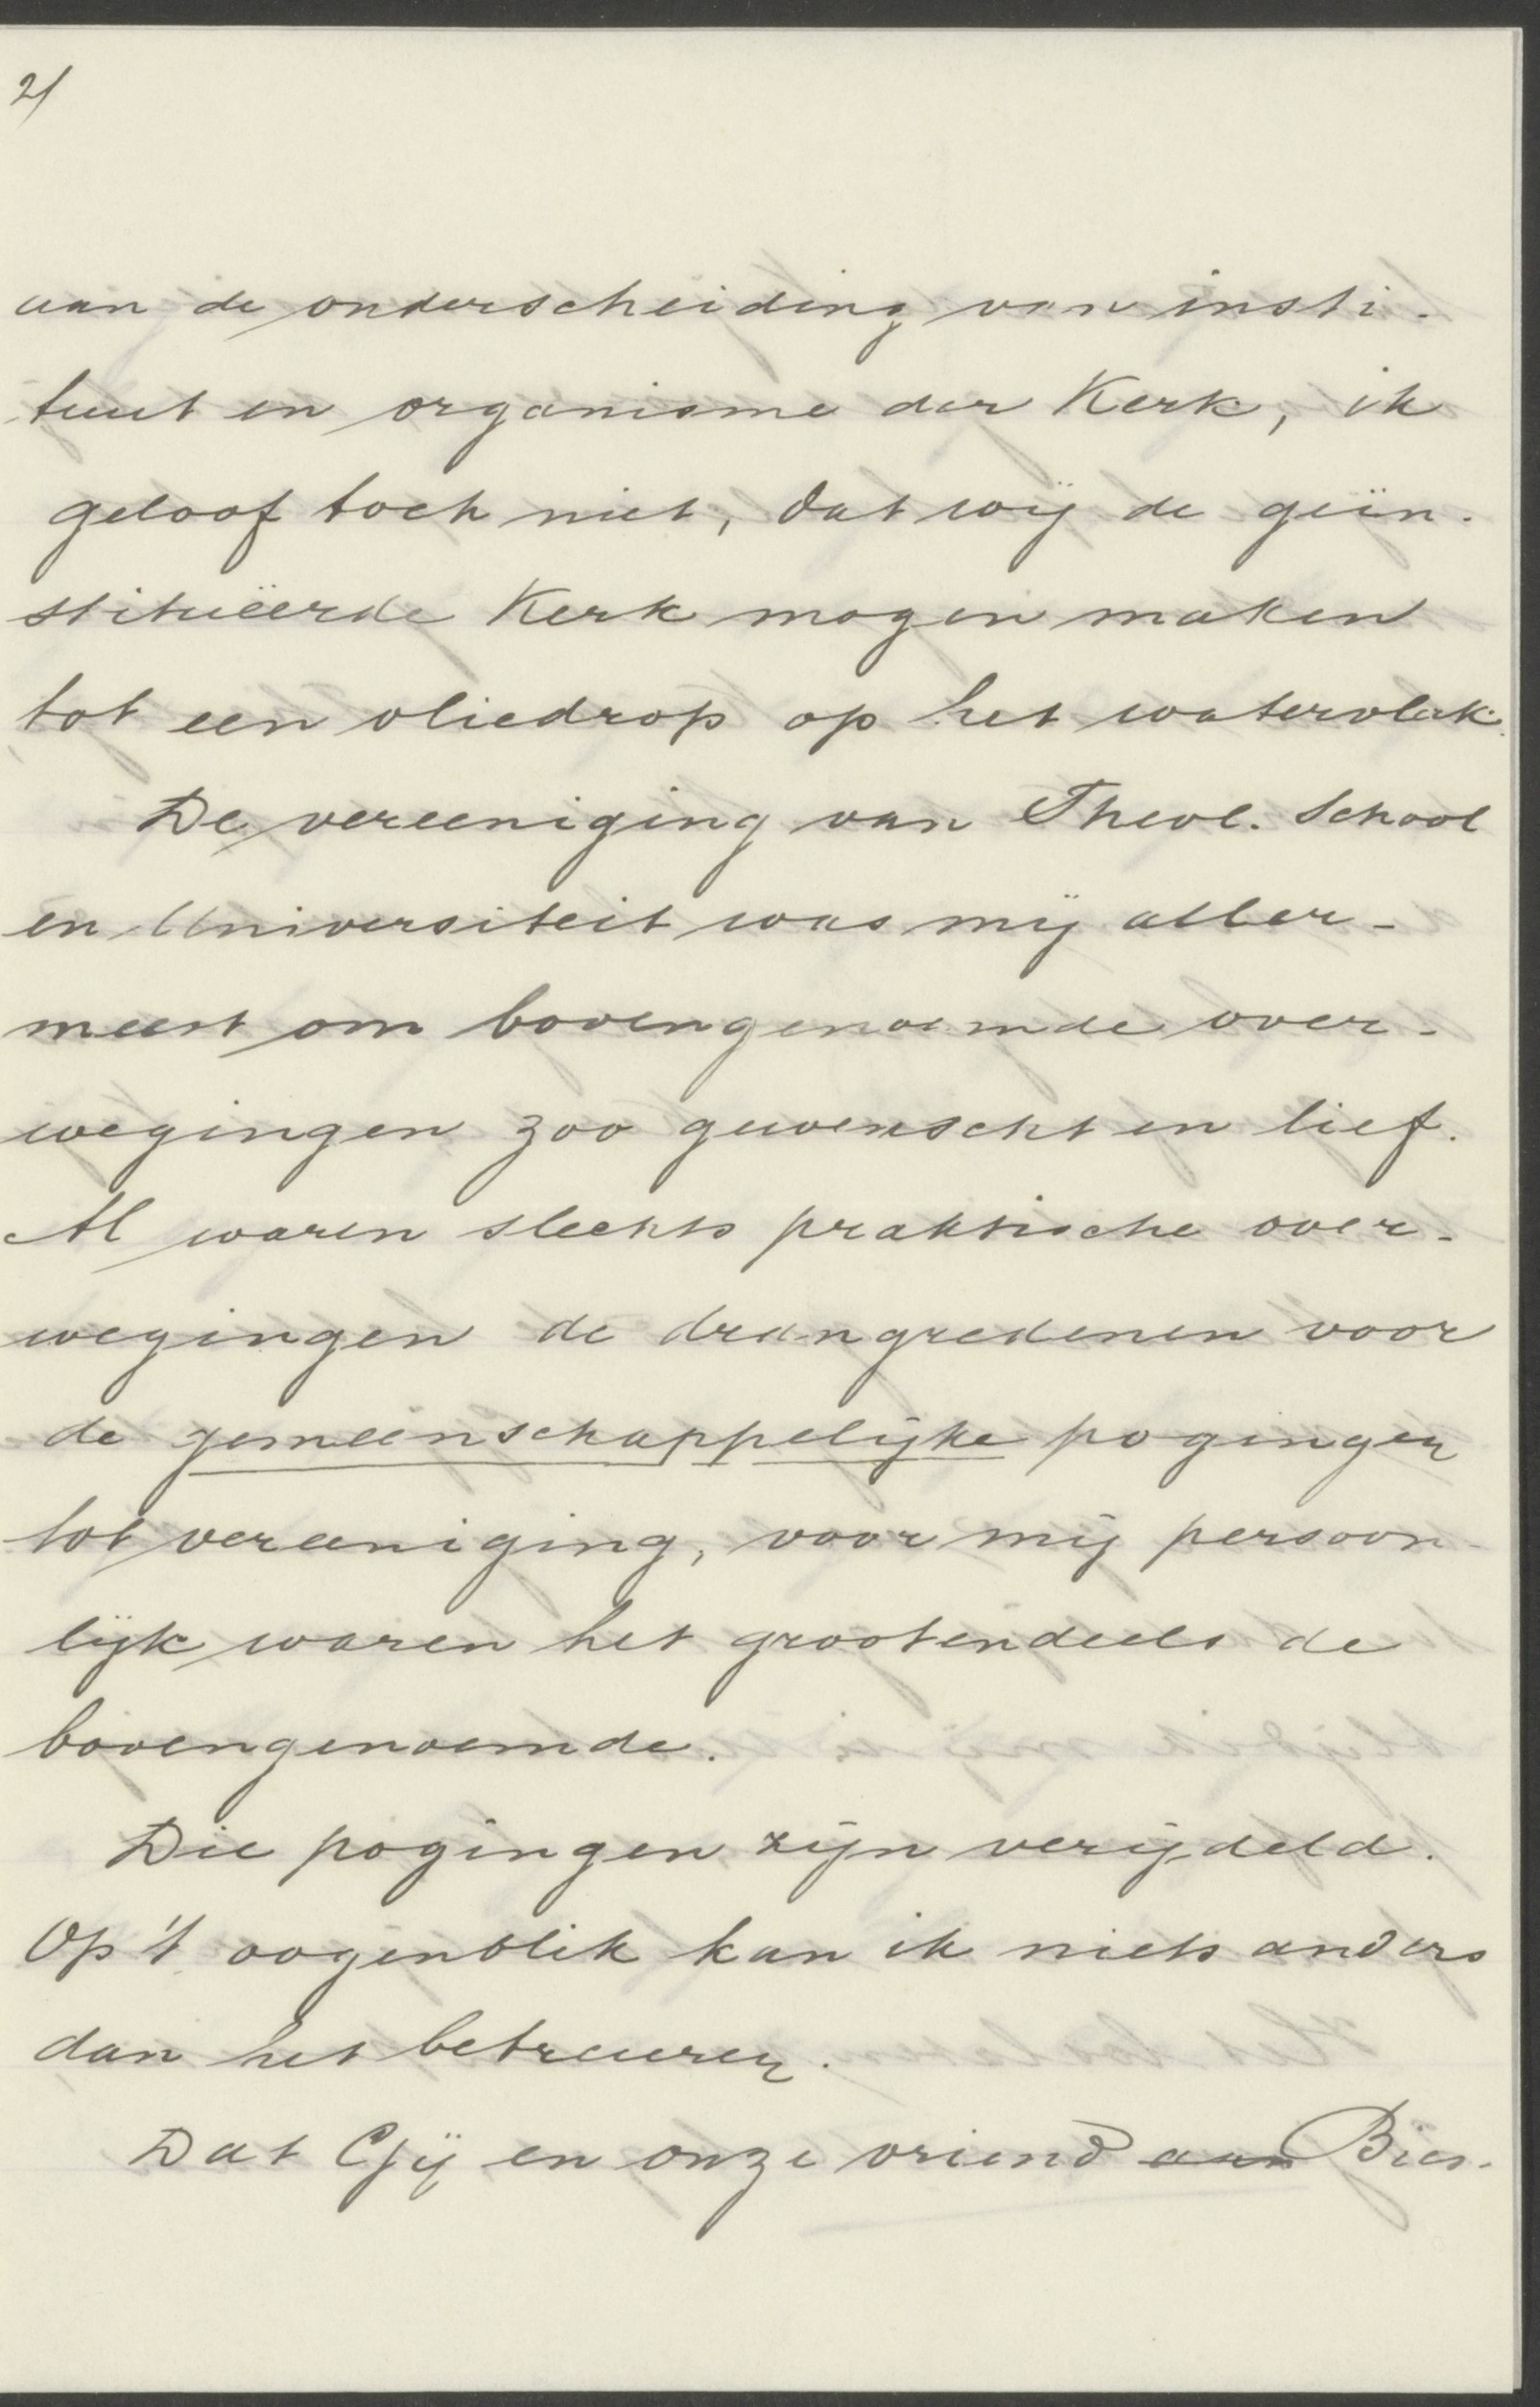 2/
aan de onderscheiding van insti-
tuut en organisme der Kerk, ik
geloof toch niet, dat wij de geïn-
stitueërde Kerk mogen maken
tot een oliedrop op het watervlak.
De vereeniging van Theol. School
en Universiteit was mij aller-
meest om bovengenoemde over-
wegingen zoo gewenscht en lief.
Al waren slechts praktische over-
wegingen de drangredenen voor
de gemeenschappelijke pogingen
tot vereeniging, voor mij persoon-
lijk waren het grootendeels de
bovengenoemde.
Die pogingen zijn verijdeld.
Op 't oogenblik kan ik niets anders
dan het betreuren.
Dat Gij en onze vriend aan Bies-